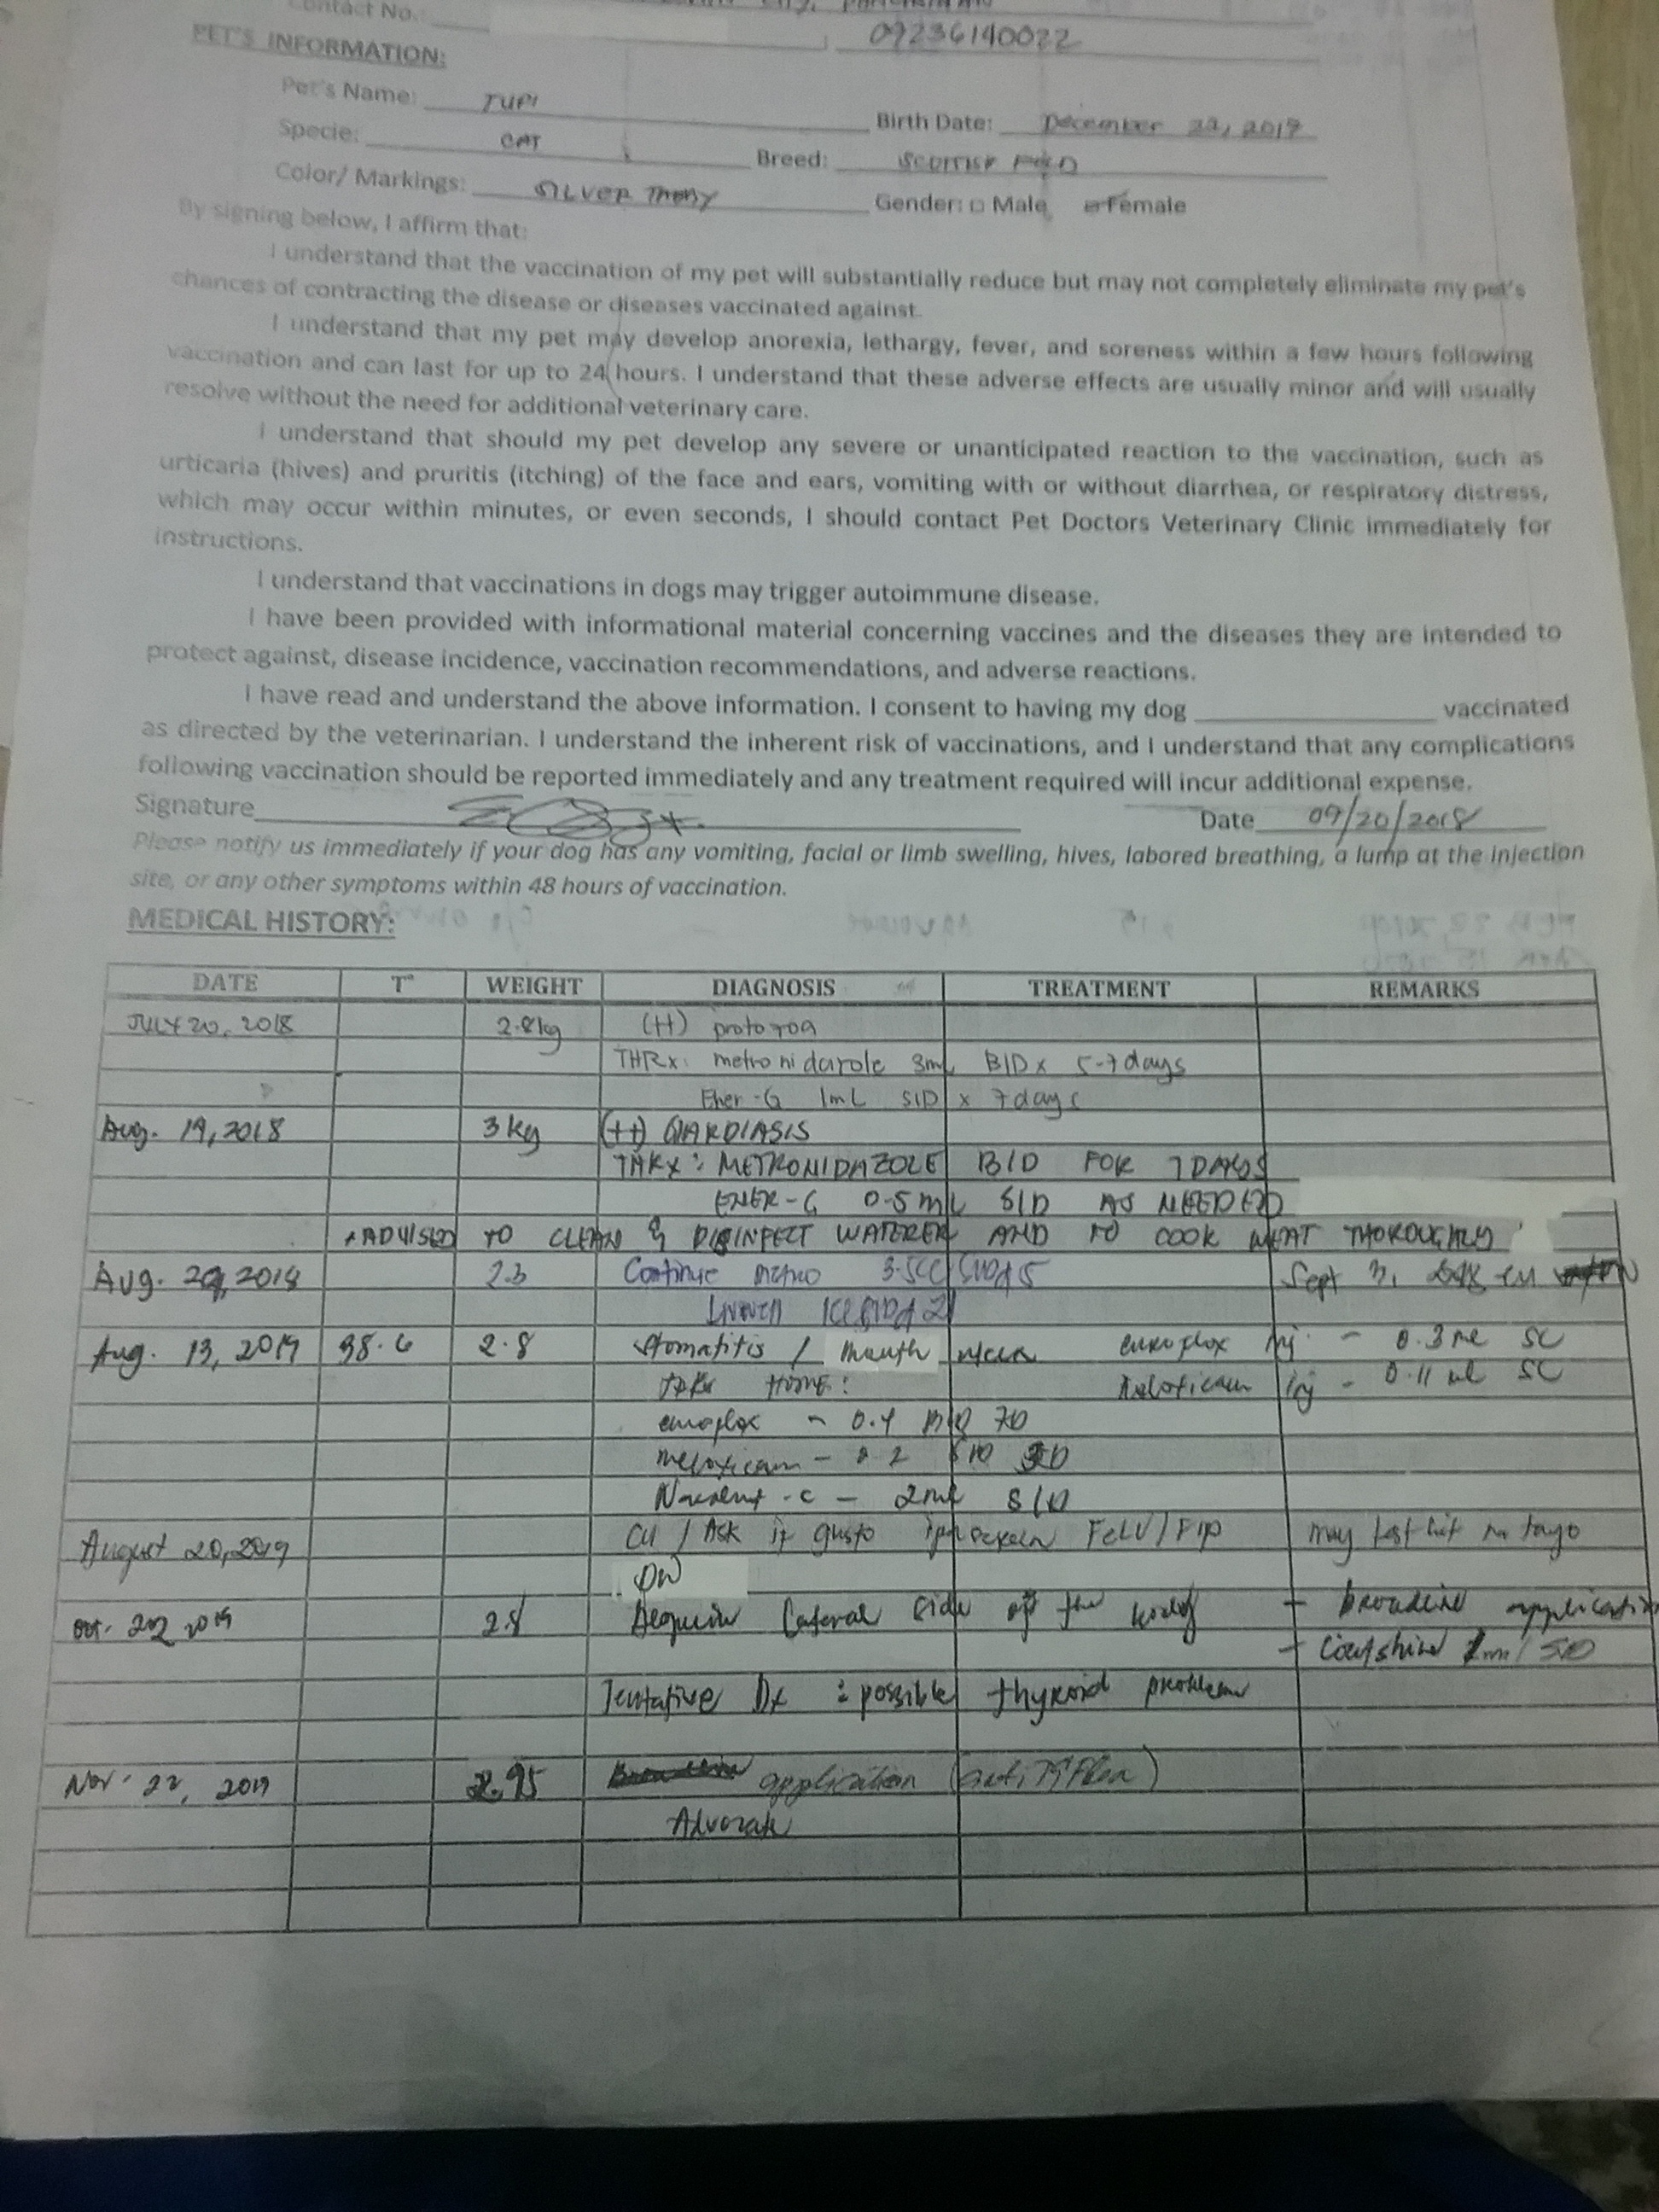 Contact No.:
09236140022
PET'S INFORMATION:
Pet's Name: TUPI
Birth Date: December 23, 2017
Specie: CAT
Breed: SCOTTISH FOLD
Color/ Markings: SILVER
Gender: □ Male Female
By signing below, I affirm that:
I understand that the vaccination of my pet will substantially reduce but may not completely eliminate my pet's
chances of contracting the disease or diseases vaccinated against.
I understand that my pet may develop anorexia, lethargy, fever, and soreness within a few hours following
vaccination and can last for up to 24 hours. I understand that these adverse effects are usually minor and will usually
resolve without the need for additional veterinary care.
I understand that should my pet develop any severe or unanticipated reaction to the vaccination, such as
urticaria (hives) and pruritis (itching) of the face and ears, vomiting with or without diarrhea, or respiratory distress,
which may occur within minutes, or even seconds, I should contact Pet Doctors Veterinary Clinic immediately for
instructions.
I understand that vaccinations in dogs may trigger autoimmune disease.
I have been provided with informational material concerning vaccines and the diseases they are intended to
protect against, disease incidence, vaccination recommendations, and adverse reactions.
I have read and understand the above information. I consent to having my dog ____ vaccinated
as directed by the veterinarian. I understand the inherent risk of vaccinations, and I understand that any complications
following vaccination should be reported immediately and any treatment required will incur additional expense.
Signature Date 09/20/2018
Please notify us immediately if your dog has any vomiting, facial or limb swelling, hives, labored breathing, a lump at the injection
site, or any other symptoms within 48 hours of vaccination.
MEDICAL HISTORY:
DATE T° WEIGHT DIAGNOSIS TREATMENT REMARKS
JULY 20, 2018 2.8kg (++) protozoa
THRx: metronidazole 3mL BID x 5-7 days
Ener-G 1mL SID x 7 days
Aug. 19, 2018 3 kg (++) GIARDIASIS
THRX: METRONIDAZOLE BID FOR 7 DAYS
ENER-G 0.5 mL SID AS NEEDED
*ADVISED TO CLEAN & DISINFECT WATERER AND TO COOK MEAT THOROUGHLY
Aug. 29, 2018 2.3 Continue metro 3.5cc 5 Sept 3,
Aug. 13, 2019 38.6 2.8 Stomatitis / mouth ulcer euroflox inj. - 0.3 ml SC
take HOME: meloxicam inj - 0.11 ml SC
euroflox - 0.4 BID 7D
meloxicam - 0.2 SID
- 2ml SID
August 20, 2019 CU / Ask if gusto FeLV/FIP may test kit na tayo
Oct. 2019 2.8 lateral side of the body - broadline application
- Coatshine SID
Tentative Dx: possible thyroid problem
Nov. 22, 2019 2.95 application
Advocate